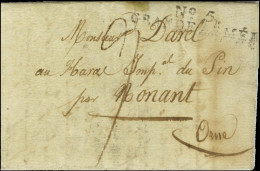 No 5
GRANDE ARMÉE
Monsieur Darel
au Haras Imp.al du Pin
par Nonant
Orne